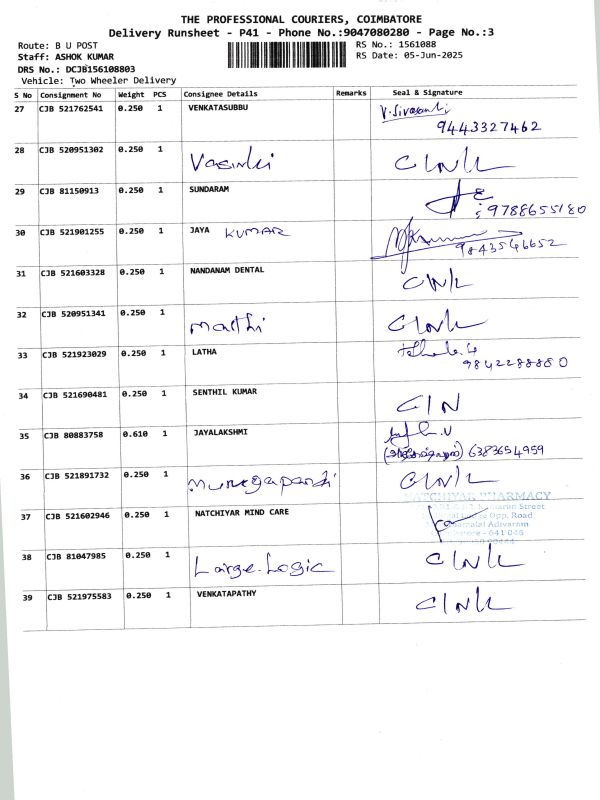 THE PROFESSIONAL COURIERS, COIMBATORE
Delivery Runsheet - P41 - Phone No.:9047080280 - Page No.:3
Route: B U POST RS No.: 1561088
Staff: ASHOK KUMAR RS Date: 05-Jun-2025
DRS No.: DCJB156108803
Vehicle: Two Wheeler Delivery
S No Consignment No Weight PCS Consignee Details Remarks Seal & Signature
27 CJB 521762541 0.250 1 VENKATASUBBU V. Sivasankari
9443327462
28 CJB 520951302 0.250 1 Vasuki C/N/L
29 CJB 81150913 0.250 1 SUNDARAM
: 9788655180
30 CJB 521901255 0.250 1 JAYA KUMAR
9843546652
31 CJB 521603328 0.250 1 NANDANAM DENTAL C/N/L
32 CJB 520951341 0.250 1 C/N/L
33 CJB 521923029 0.250 1 LATHA
9842288880
34 CJB 521690481 0.250 1 SENTHIL KUMAR C/N
35 CJB 80883758 0.610 1 JAYALAKSHMI
6383654959
36 CJB 521891732 0.250 1 Murugapandi C/N/L
NATCHIYAR PHARMACY
37 CJB 521602946 0.250 1 NATCHIYAR MIND CARE Kamaran Street
Opp. Road
Adivaram
- 641 045
38 CJB 81047985 0.250 1 Large-Logic C/N/L
39 CJB 521975583 0.250 1 VENKATAPATHY C/N/L